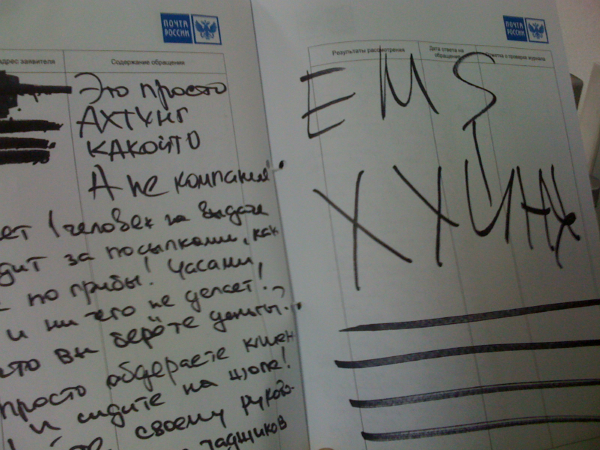 ПОЧТА РОССИИ
адрес заявителя
Содержание обращения
Это просто
АХТУНГ
КАКОЙТО
А не компания!
ет 1 человек на выдаче
дит за посылками, как
по грибы! Часами,
и ничего не делает!
что вы берёте деньги..?
просто обдераете клиен
и сидите на жопе!
своему руково-
ПОЧТА РОССИИ
Результаты рассмотрения
Дата ответа на
о проверке журнала
EMS